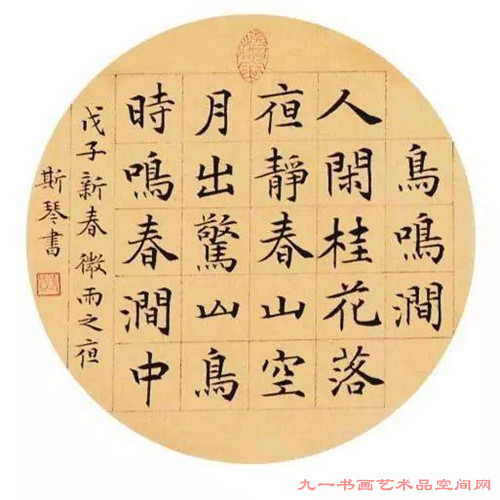 鳥鳴澗
人閑桂花落
夜靜春山空
月出驚山鳥
時鳴春澗中
戊子新春微雨之夜
斯琴書
九一书画艺术品空间网